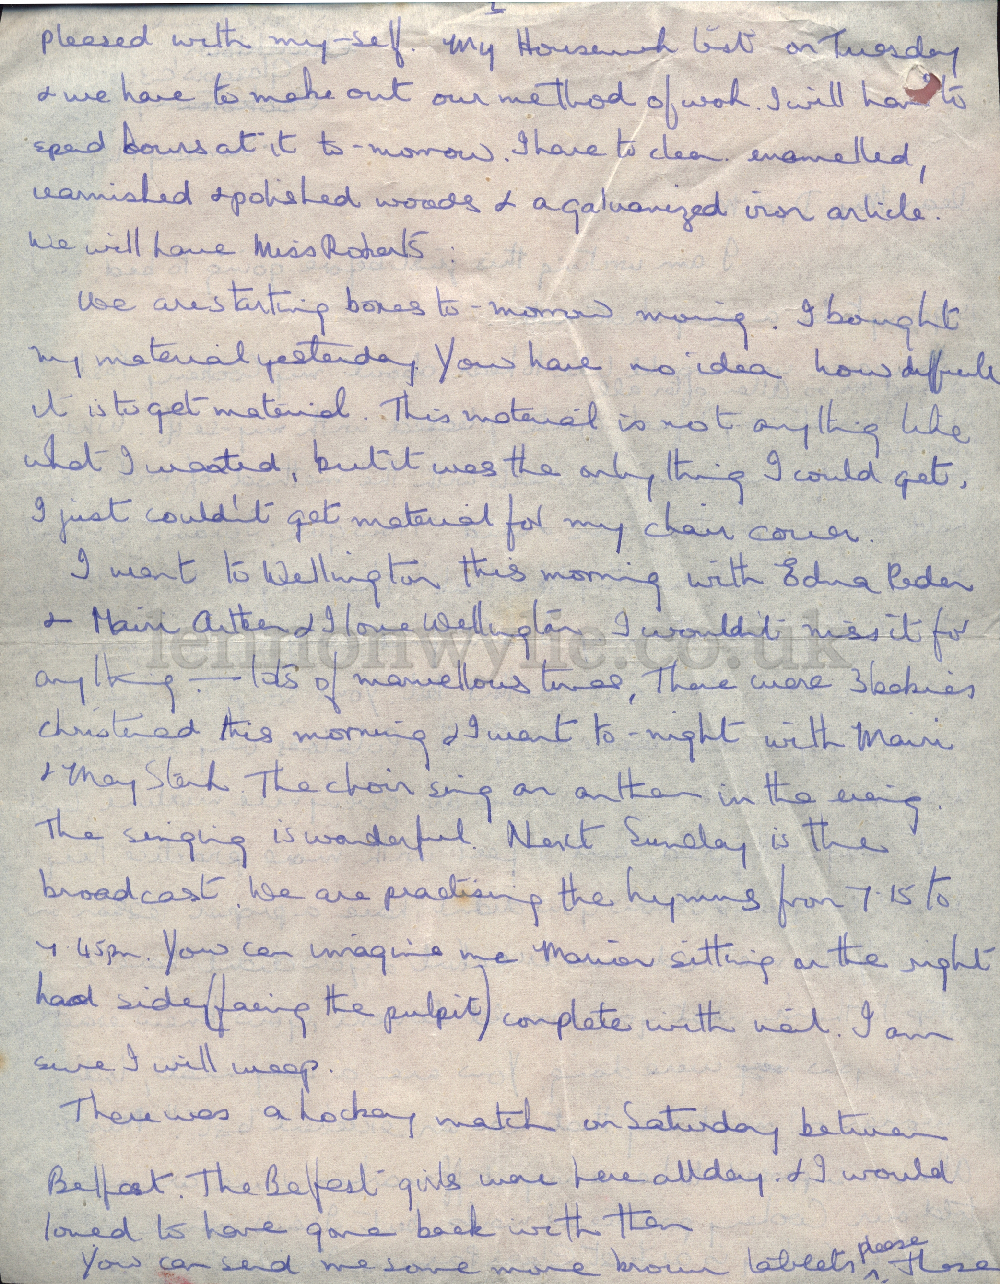 pleased with my-self. My Housework test on Tuesday
& we have to make out our method of work. I will have to
sped hours at it to-morrow. I have to clean enamelled,
varnished & polished woods & a galvanized iron article.
We will have Miss Roberts.
We are starting boxes to-morrow morning. I bought
my material yesterday. You have no idea how difficult
it is to get material. This material is not anything like
what I wanted, but it was the only thing I could get.
I just couldn't get material for my chair cover.
I went to Wellington this morning with Edna
& Mairi & I love Wellington I wouldn't miss it for
anything — lots of marvellous tunes, There were 3 babies
christened this morning & I went to-night with Mairi
& May The choir sing an anthem in the evening.
The singing is wonderful. Next Sunday is the
broadcast. We are practising the hymns from 7.15 to
7.45pm. You can imagine me Marion sitting on the right
hand side (facing the pulpit) complete with veil. I am
sure I will weep.
There was a hockey match on Saturday between
Belfast. The Belfast girls were here all day. & I would
loved to have gone back with them
You can send me some more brown tablets please These
lennonwylie.co.uk